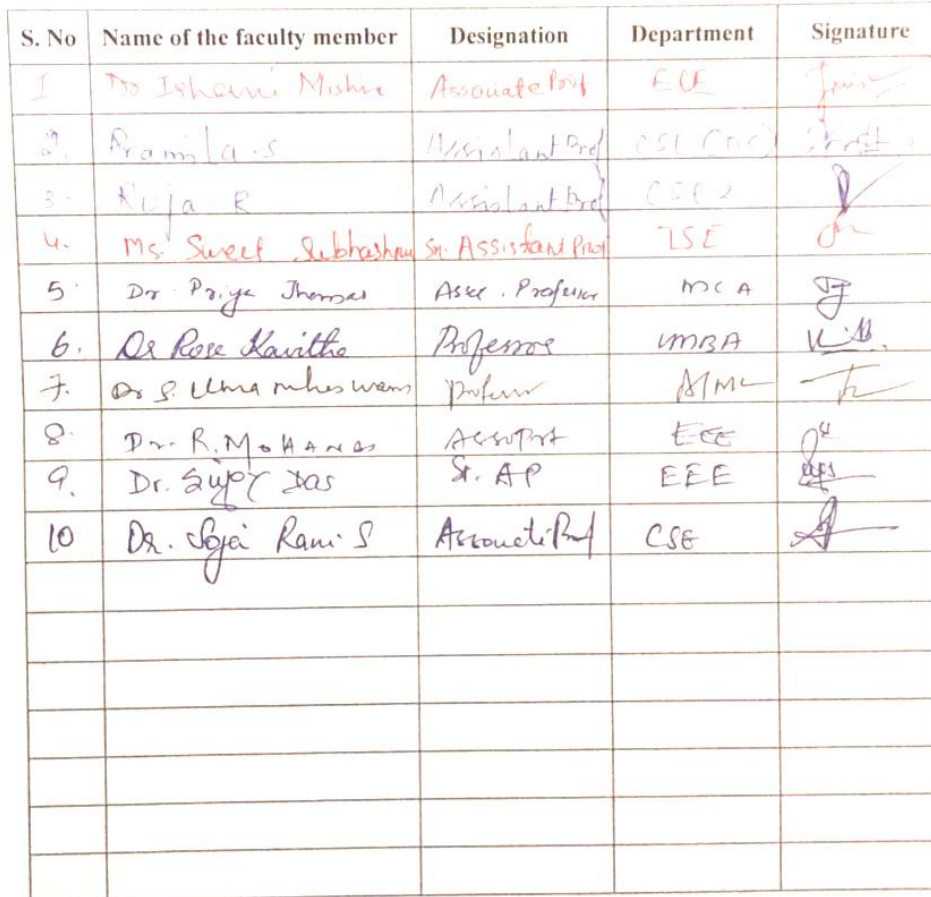 S. No Name of the faculty member Designation Department Signature
1 Dr Ishani Mishra Associate Prof ECE
2. Pramila.S Assistant Prof CSE
3. Roja R Assistant Prof CSE
4. Ms. Sweet Subhashree Sr. Assistant Prof ISE
5 Dr. Priya Thomas Asso. Professor MCA
6. Dr Rose Kavitha Professor MBA
7. Dr S. Uma maheswari professor AIML
8. Dr. R. MOHANAS Asso Prof EEE
9. Dr. SUJOY DAS Sr. AP EEE
10 Dr. Soja Rani S Associate Prof CSE